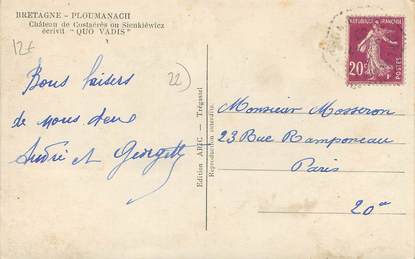 BRETAGNE - PLOUMANACH
Château de Costaérès ou Sienkiéwicz
écrivit "QUO VADIS"
12f
22)
REPUBLIQUE FRANÇAISE
20c
POSTES
Bons baisers
de nous deux
André et Georgette
Edition ARIC — Trégastel
Reproduction interdite
Monsieur Mosseron
23 Rue Ramponeau
Paris
20e